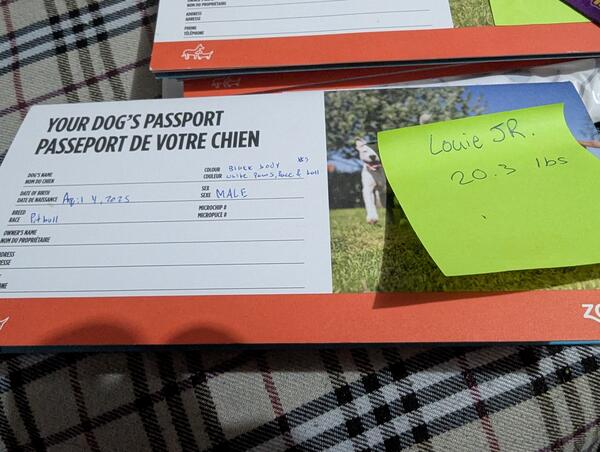 NOM DU PROPRIÉTAIRE
ADDRESS
ADRESSE
PHONE
TÉLÉPHONE
YOUR DOG'S PASSPORT
PASSEPORT DE VOTRE CHIEN
DOG'S NAME
NOM DU CHIEN
DATE OF BIRTH
DATE DE NAISSANCE April 4, 2025
BREED
RACE Pitbull
OWNER'S NAME
NOM DU PROPRIÉTAIRE
COLOUR Black body
COULEUR white paws, face & tail
SEX
SEXE MALE
MICROCHIP #
MICROPUCE #
Louie JR.
20.3 lbs